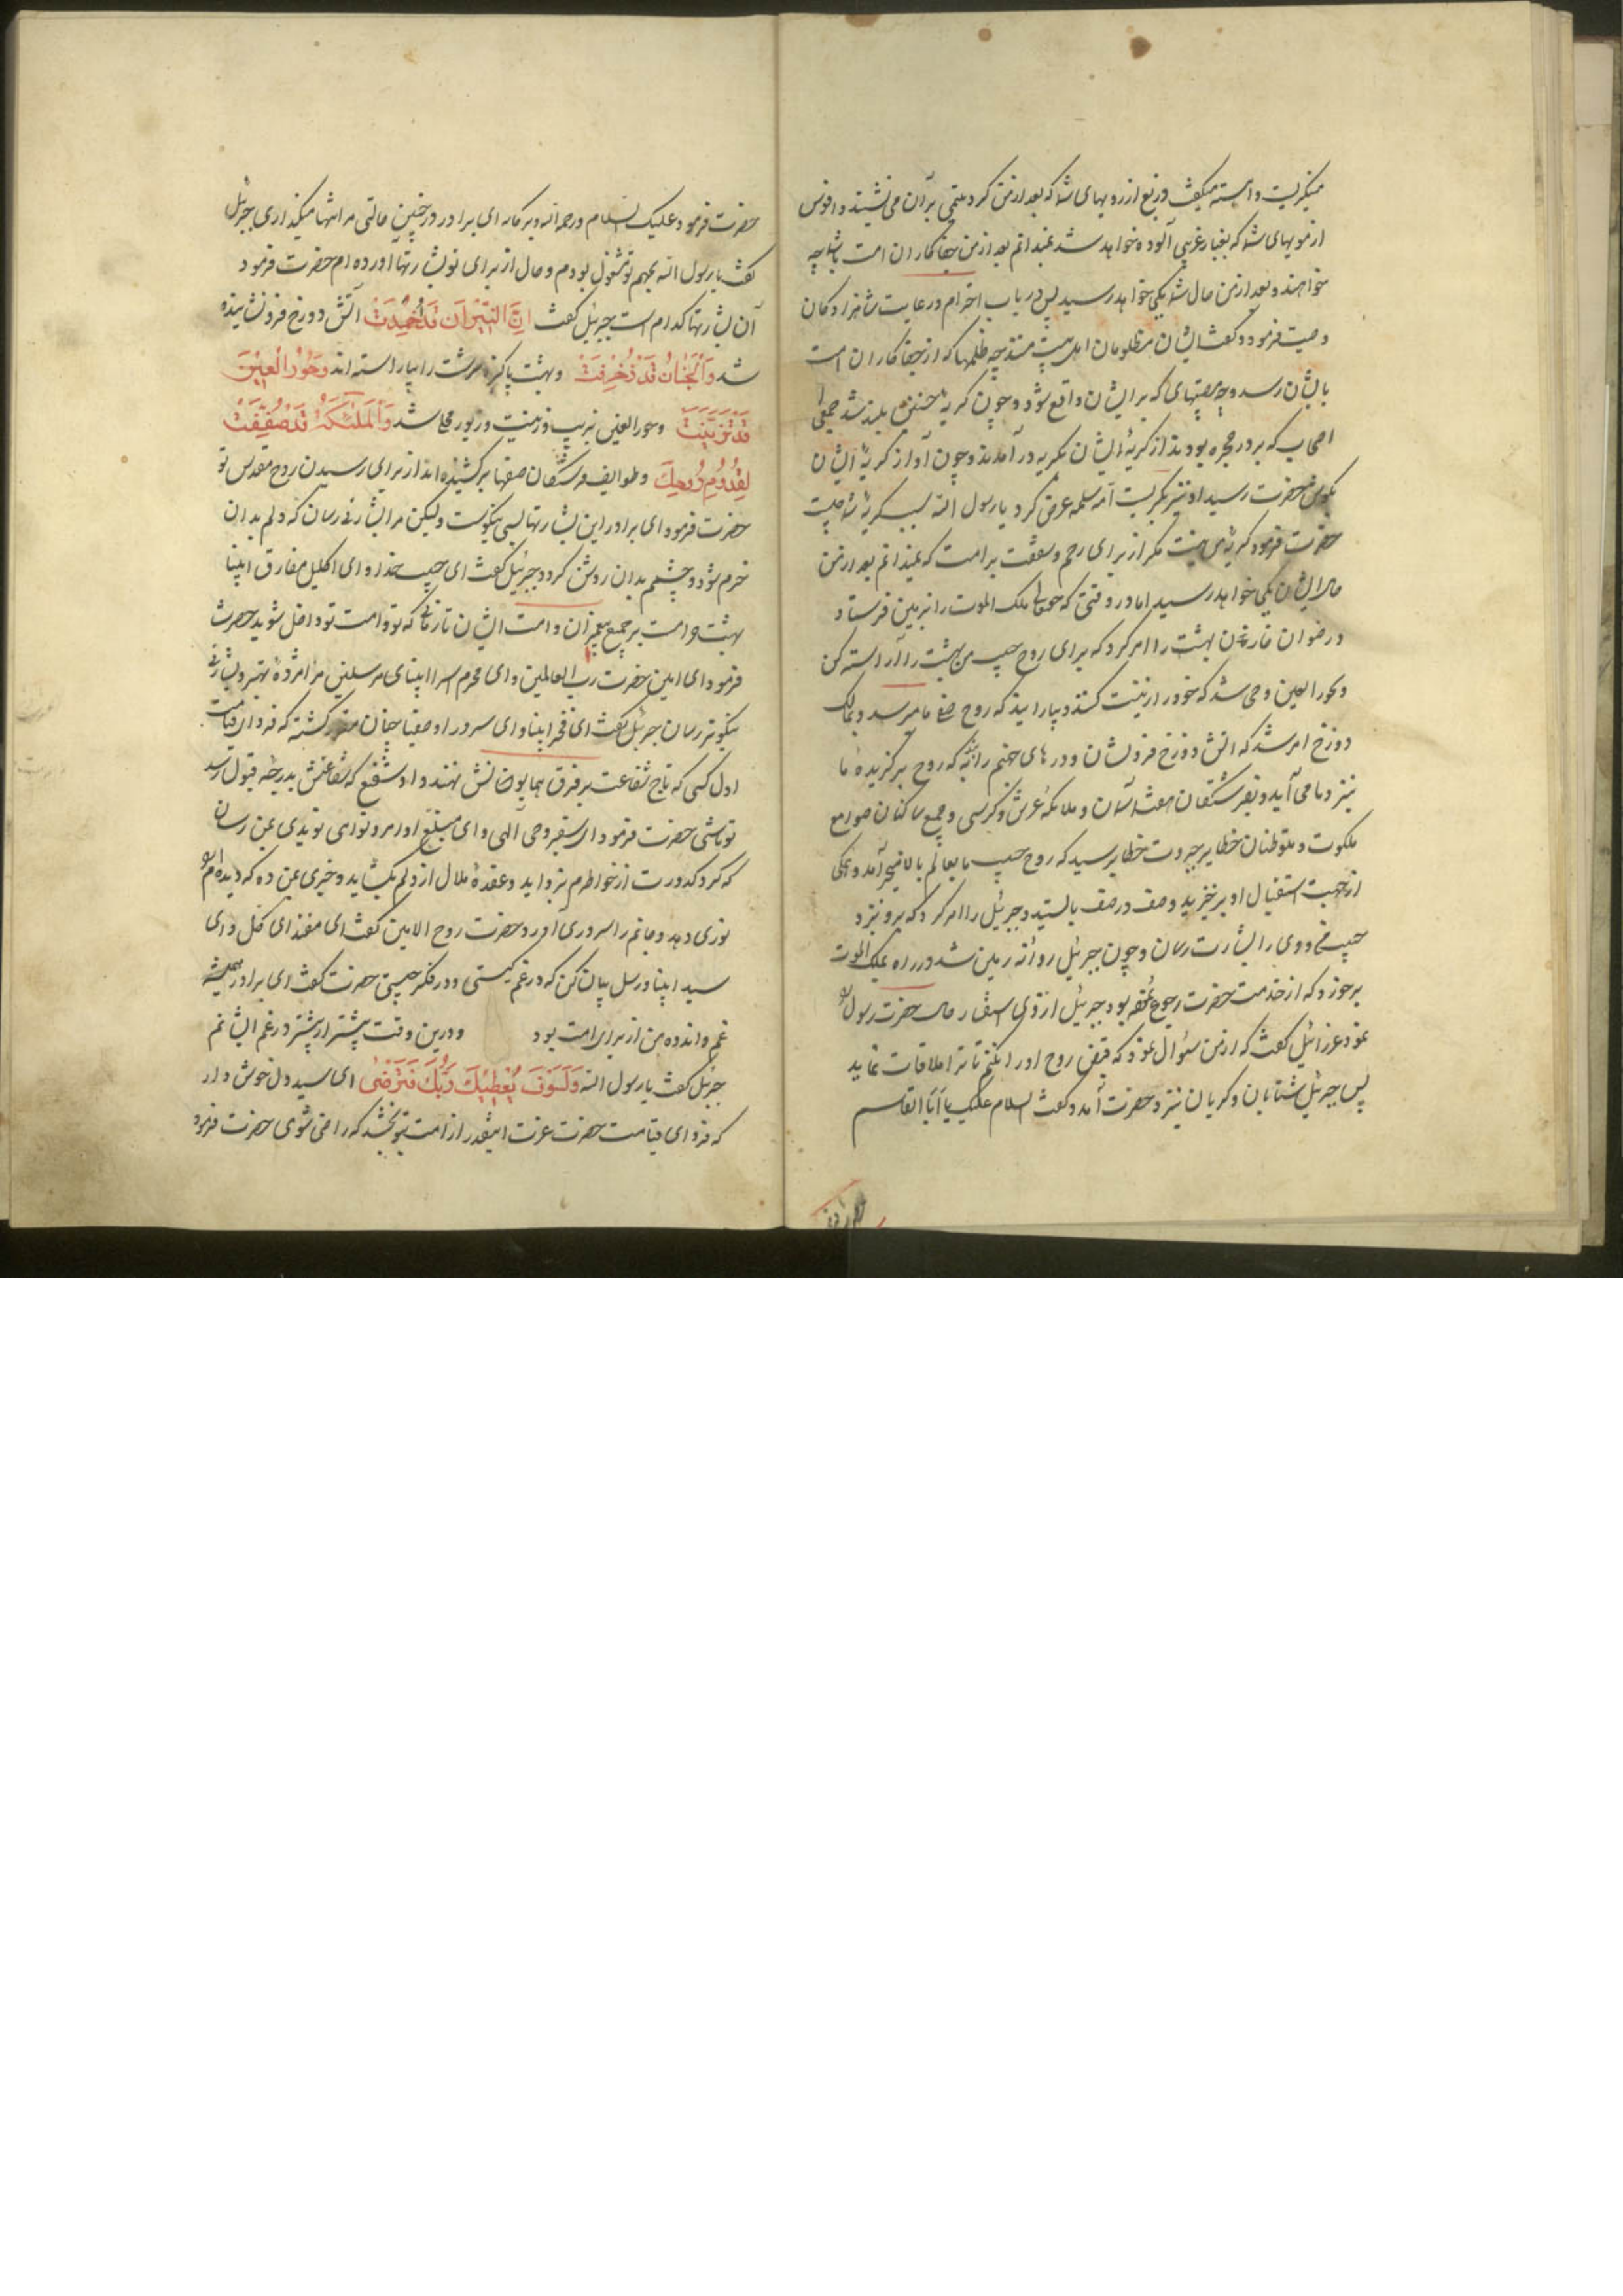 میگریست و آهسته میگفت دریغ از رویهای شما که بعد از من گرد یتیمی بر آن می نشیند و افسوس
از مویهای شما که بغبار غریبی آلوده خواهد شد نمیدانم بعد از من جفاکاران امت با شما چه
خواهند و بعد از من حال شما بکی خواهد رسید پس در باب احترام و رعایت شاهزادگان
وصیت فرمود و گفت ایشان مظلومان اهل بیت منند چه ظلمها که از جفاکاران امت
بایشان رسد و چه مصیبتهای که بر ایشان واقع شود و چون گریه حسنین بلند شد جمعی
اصحاب که بر در حجره بودند از گریه ایشان بگریه در آمدند و چون آواز گریه ایشان
بگوش حضرت رسید او نیز بگریست ام سلمه عرض کرد یا رسول الله سبب گریه شما چیست
حضرت فرمود گریه من نیست مگر از برای رحم و شفقت بر امت که نمیدانم بعد از من
حال ایشان بکی خواهد رسید اما در وقتی که حقتعالی ملک الموت را بزمین فرستاد
و رضوان خازن بهشت را امر کرد که برای روح حبیب من بهشت را آراسته کن
و بحور العین وحی شد که خود را زینت کنند و بیارایید که روح صفی ما میرسد و بمالک
دوزخ امر شد که آتش دوزخ فرونشان و درهای جهنم را ببند که روح برگزیده ما
نیز دما می آید و بفرشتگان هفت آسمان و ملائکه عرش و کرسی و جمیع ساکنان صوامع
ملکوت و متوطنان خطایر جبروت خطاب رسید که روح حبیب ما بعالم بالا میخرامد و همگی
از جهت استقبال او برخیزید و صف در صف بایستید و جبرئیل را امر کرد که برو نزد
حبیب من و وی را بشارت رسان و چون جبرئیل روانه زمین شد در راه بملک الموت
برخورد که از خدمت حضرت رجوع نموده بود جبرئیل از وی استفسار حال حضرت رسول
نمود عزرائیل گفت که از من سئوال نمود که قبض روح او را نکنم تا ترا ملاقات نماید
پس جبرئیل شتابان و گریان نزد حضرت آمد و گفت السلام علیک یا ابا القاسم
حضرت فرمود علیک السلام و رحمة الله و برکاته ای برادر در چنین حالتی مرا تنها میگذاری جبرئیل
گفت یا رسول الله بمهم تو مشغول بودم و حال از برای تو بشارتها آورده ام حضرت فرمود
آن بشارتها کدام است جبرئیل گفت اِنَّ النّیرانَ قَدْ اُخْمِدَتْ آتش دوزخ فرو نشانیده
شد وَالْجَنانُ قَدْ زُخْرِفَتْ و بهشت پاکیزه سرشت را بیاراسته اند وَحُورُالْعِیْنِ
قَدْ تَزَیَّنَتْ و حور العین بزیب و زینت و زیور محلی شد وَالْمَلٰئِکَةُ قَدْ صُفِّفَتْ
لِقُدُومِ رُوحِكَ و طوایف فرشتگان صفها برکشیده اند از برای رسیدن روح مقدس تو
حضرت فرمود ای برادر این بشارتها بسی نیکوست ولیکن مرا بشارتی رسان که دلم بدان
خرم شود و چشمم بدان روشن گردد جبرئیل گفت ای حبیب خدا و ای اکلیل مفارق انبیا
بهشت حرامست بر جمیع پیغمبران و امت ایشان تا زمانی که تو و امت تو داخل شوید حضرت
فرمود ای امین حضرت رب العالمین و ای محرم اسرا انبیای مرسلین مرا مژدهٔ بهتر و بشارتی
نیکوتر رسان جبرئیل گفت ای فخر انبیا و ای سرور اوصفیا چنان مقرر گشته که فردای قیامت
اول کسی که تاج شفاعت بر فرق همایون‌نش نهند و اول شفیع که شفاعتش بدرجه قبول رسد
تو باشی حضرت فرمود ای سفیر وحی آلهی و ای مبلغ اوامر و نواهی نویدی بمن رسان
که گرد کدورت از خواطرم بزداید و عقدهٔ ملال از دلم بگشاید و خبری بمن ده که دیده ام را
نوری دهد و جانم را سروری آورد حضرت روح الامین گفت ای مقتدای کل و ای
سید انبیا و رسل بیان کن که در غم کیستی و در فکر چیستی حضرت گفت ای برادر همیشه
غم و اندوه من از برای امت بود و درین وقت بیشتر از پیشتر در غم ایشانم
جبرئیل گفت یا رسول الله وَلَسَوْفَ یُعْطِیْكَ رَبُّكَ فَتَرْضٰی ای سید دل خوش دار
که فردای قیامت حضرت عزت اینقدر از امت بتو بخشد که راضی شوی حضرت فرمود